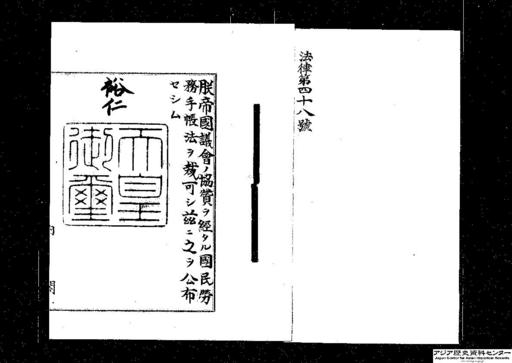 法律第四十八號
朕帝國議會ノ協贊ヲ經タル國民勞
務手帳法ヲ裁可シ茲ニ之ヲ公布
セシム
裕仁
天皇
御璽
内閣
アジア歴史資料センター
Japan Center for Asian Historical Records